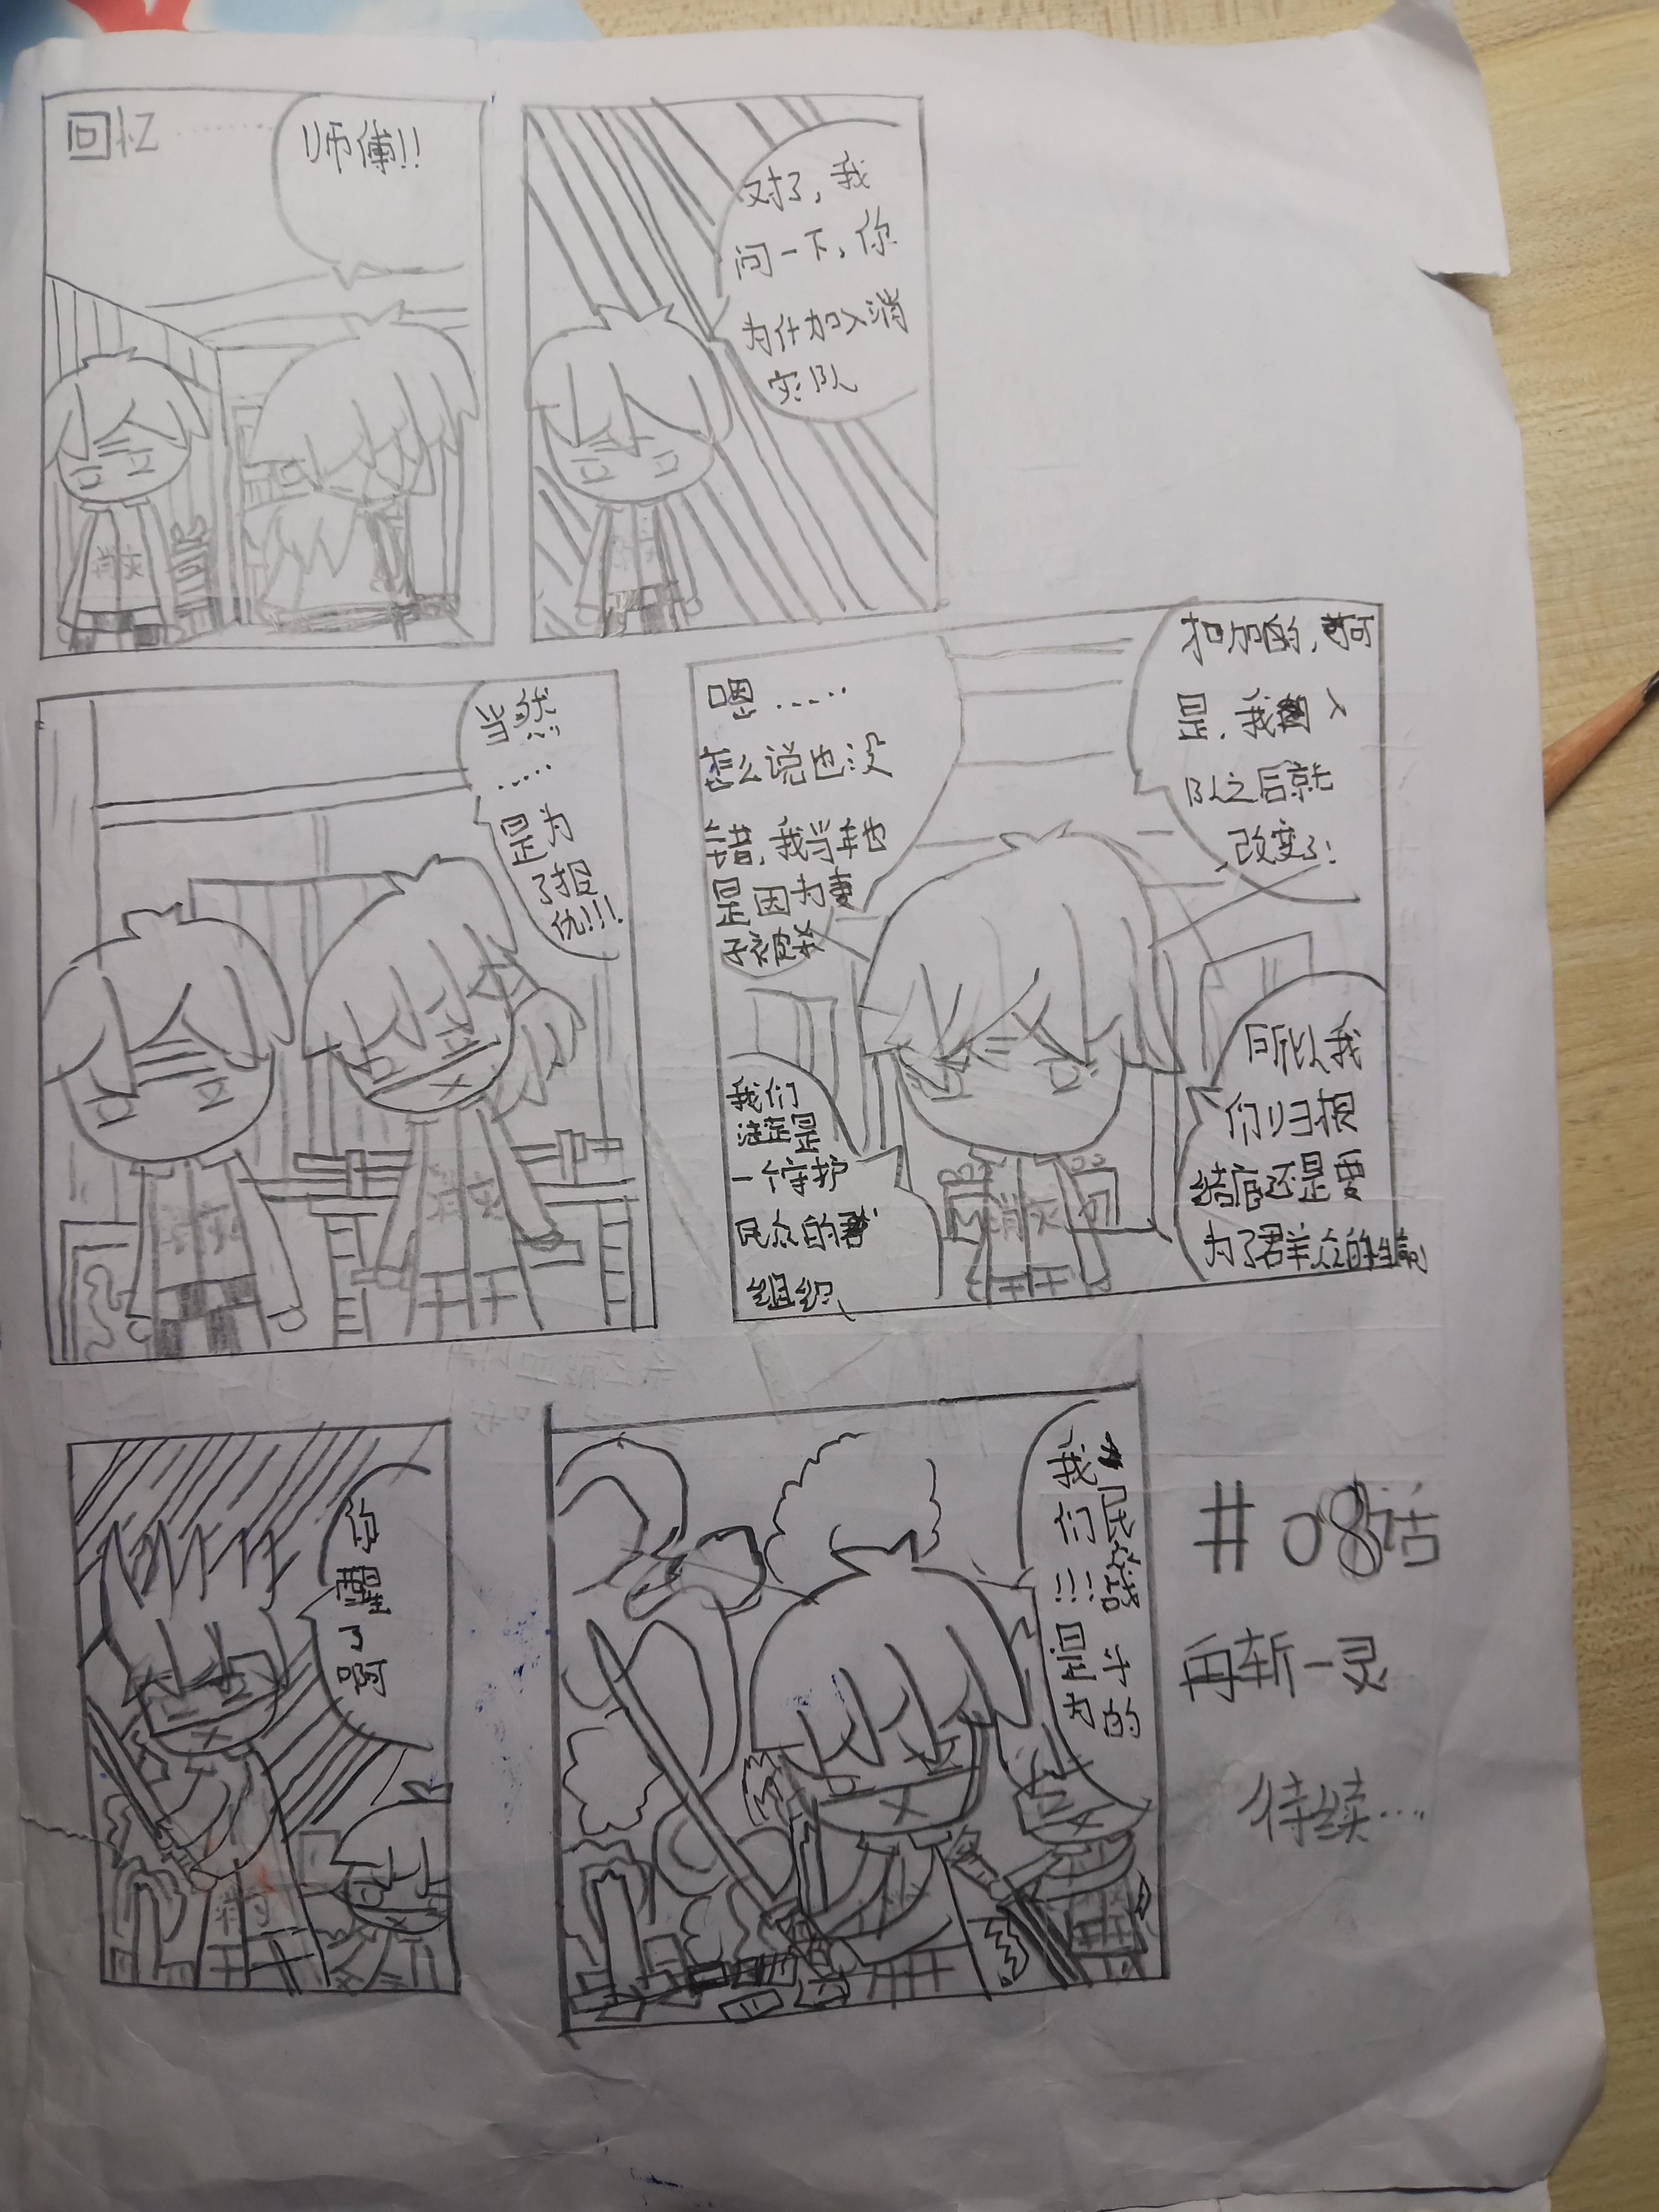 回忆……
师傅!!
对了,我
问一下,你
为什加入消
灾队
当然
……
是为
了报
仇!!!
嗯……
怎么说也没
错,我当年也
是因为妻
子被
加的,可
是,我入
队之后就
改变了!
我们
是
一个守护
民众的
组织
所以我
们归根
结底还是要
为了群众的生命
你
醒
了
啊
我们!!!是为
民众战斗的
#08话
再斩一灵
待续…